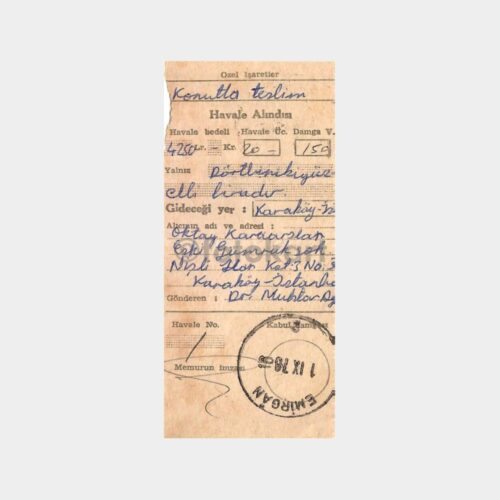 Özel İşaretler
Konutta teslim
Havale Alındısı
Havale bedeli Havale Üc. Damga V.
4250 Lr. - Kr. 20- 150
Yalnız Dörtbinikiyüz
elli liradır.
Gideceği yer : Karaköy-İs
Alıcının adı ve adresi :
Oktay Karaarslan
Eski Gümrük sok
Nişli Han Kat:3 No.
Karaköy-İstanbu
Gönderen : Dr. Muhtar
Havale No. Kabul Damgası
Memurun imzası
1 IX 78
EMİRGAN